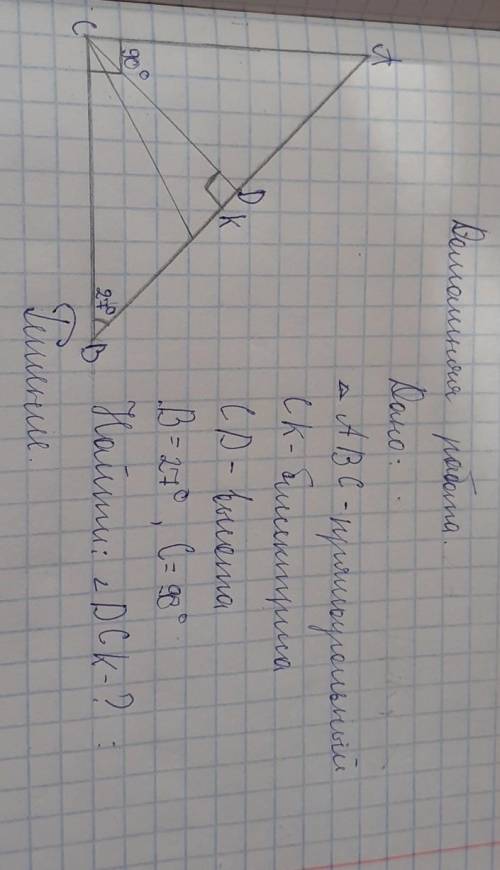 Домашняя работа.
Дано:
△ ABC - прямоугольный
CK - биссектриса
CD - высота
B = 27°, C = 90°
Найти: ∠ DCK - ? :
Решение.
A
C
90°
D
K
27°
B